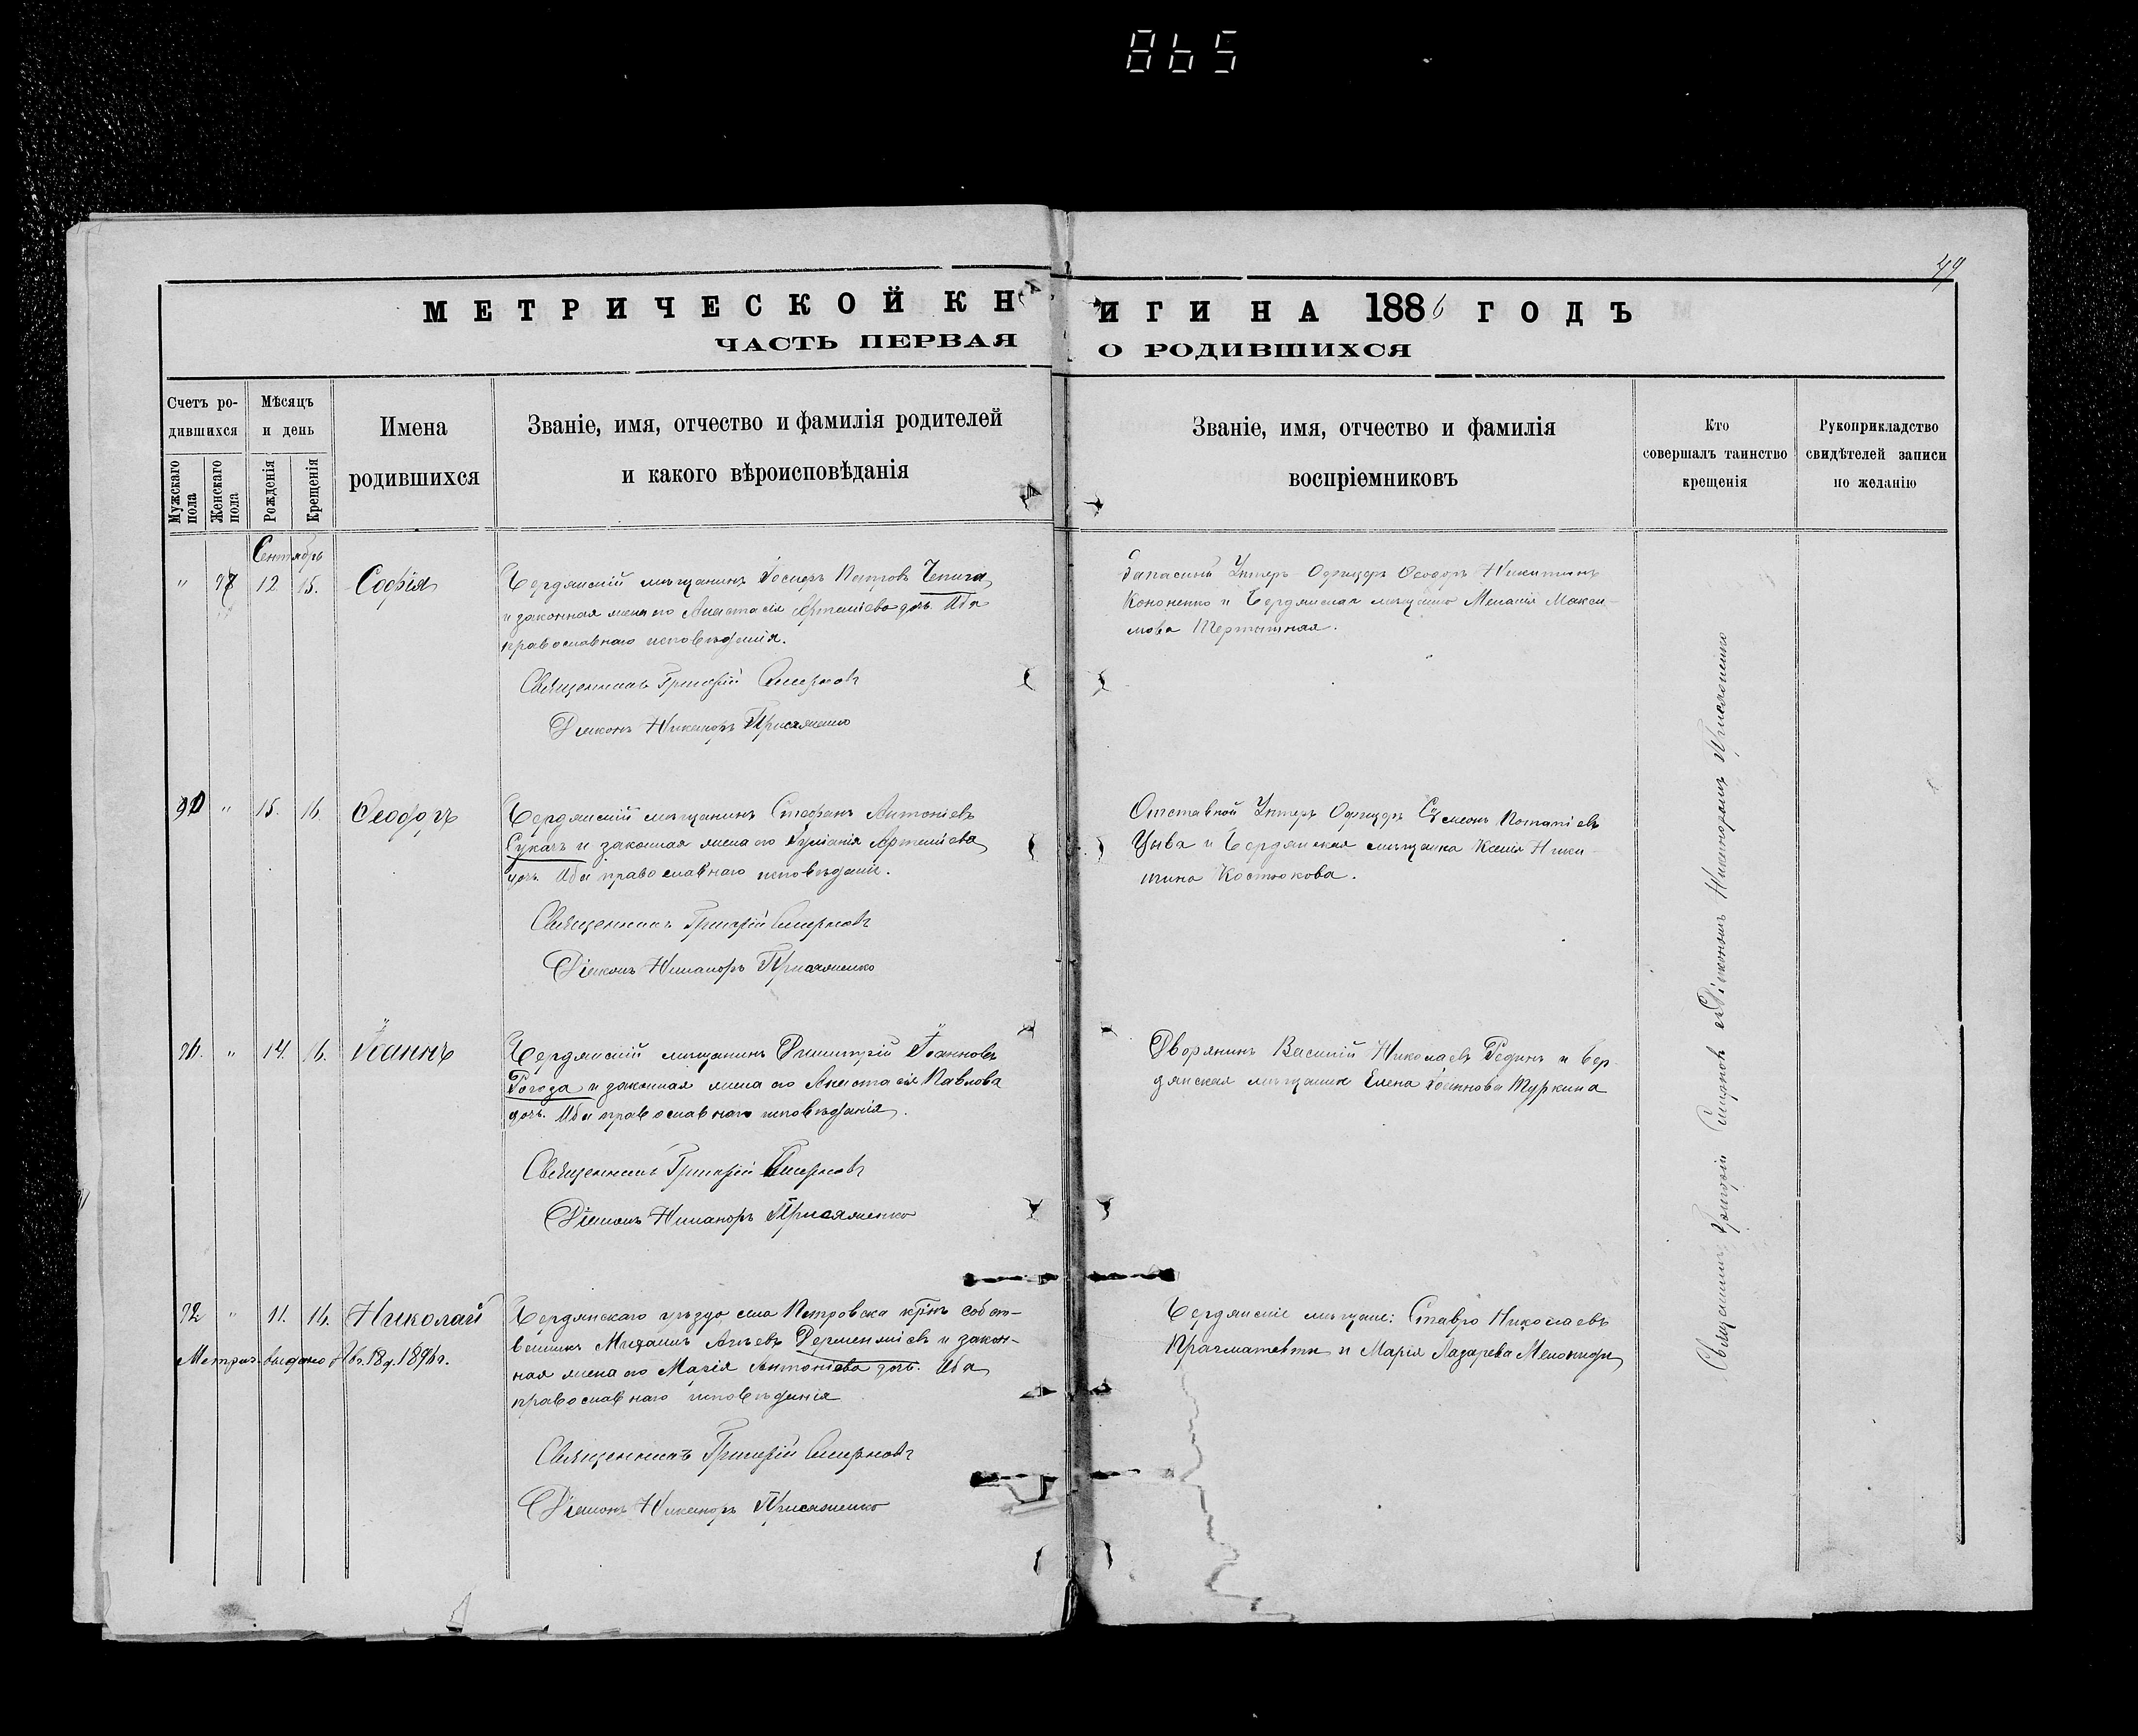 865
49
МЕТРИЧЕСКОЙ КНИГИ НА 1886 ГОДЪ
ЧАСТЬ ПЕРВАЯ О РОДИВШИХСЯ
Счетъ ро-
дившихся
Мужскаго пола
Женскаго пола
Мѣсяцъ
и день
Рожденія
Крещенія
Имена
родившихся
Званіе, имя, отчество и фамилія родителей
и какого вѣроисповѣданія
Званіе, имя, отчество и фамилія
воспріемниковъ
Кто
совершалъ таинство
крещенія
Рукоприкладство
свидѣтелей записи
по желанію
Сентябрь
" 12. 15. Софія
Бердянскій мѣщанинъ Іосифъ Петровъ Чепига
и законная жена его Анастасія Артеміева дочь. Оба
православнаго исповѣданія.
Священникъ Григорій Смирновъ
Діаконъ Никаноръ Присяженко
Запасный Унтеръ Офицеръ Ѳеодоръ Никитинъ
Кононенко и Бердянская мѣщанка Меланія Макси-
мова Тертышная.
90 " 15. 16. Ѳеодоръ
Бердянскій мѣщанинъ Стефанъ Антоніевъ
Сукачъ и законная жена его Артеміева
дочь. Оба православнаго исповѣданія.
Священникъ Григорій Смирновъ
Діаконъ Никаноръ Присяженко
Отставной Унтеръ Офицеръ Сѵмеонъ Потапіевъ
Цыба и Бердянская мѣщанка Ксенія Ники-
тина Костюкова.
91. " 14. 16. Іоаннъ
Бердянскій мѣщанинъ Димитрій Іоанновъ
Рогоза и законная жена его Анастасія Павлова
дочь. Оба православнаго исповѣданія.
Священникъ Григорій Смирновъ
Діаконъ Никаноръ Присяженко
Дворянинъ Василій Николаевъ Рединъ и Бер-
дянская мѣщанка Елена Іоаннова Туркина
92 " 11. 16. Николай
Метрич. выдано 18 1896 г.
Бердянскаго уѣзда села Петровска крнъ собст-
венникъ Михаилъ Дерменжіевъ и закон-
ная жена его Марія Антоніева дочь. Оба
православнаго исповѣданія
Священникъ Григорій Смирновъ
Діаконъ Никаноръ Присяженко
Бердянскіе мѣщане: Ставро Николаевъ
Прагматевти и Марія Лазарева
Священникъ Григорій Смирновъ съ Діакономъ Никаноромъ Присяженко